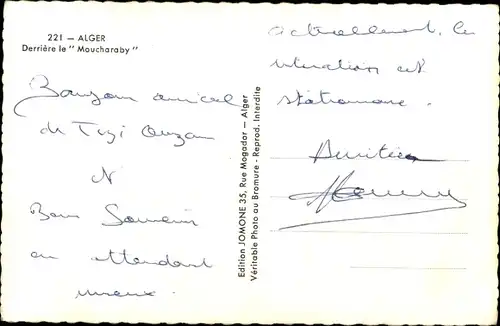 221 — ALGER
Derrière le "Moucharaby"
amical
de Tizi Ouzou
Bon Souvenir
en attendant
mieux.
Edition JOMONE 35, Rue Mogador — Alger
Véritable Photo au Bromure - Reprod. Interdite
actuellement, la
situation est
stationnaire.
Amitiés